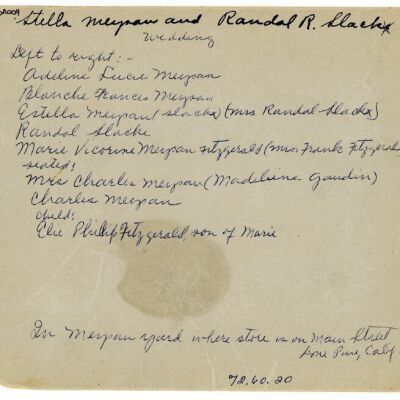 Stella Meysan and Randal R. Slack
Wedding
Left to right:-
Adeline Lucie Meysan
Blanche Frances Meysan
Estella Meysan (Slack) (Mrs Randal Slack)
Randal Slack
Marie Vicorine Meysan Fitzgerald (Mrs. Frank Fitzgerald
seated:
Mrs Charles Meysan (Madeleine Gaudin)
Charles Meysan
child:
Elie Philip Fitzgerald, son of Marie
In Meysan yard where store is on Main Street
Lone Pine, Calif
72.60.20